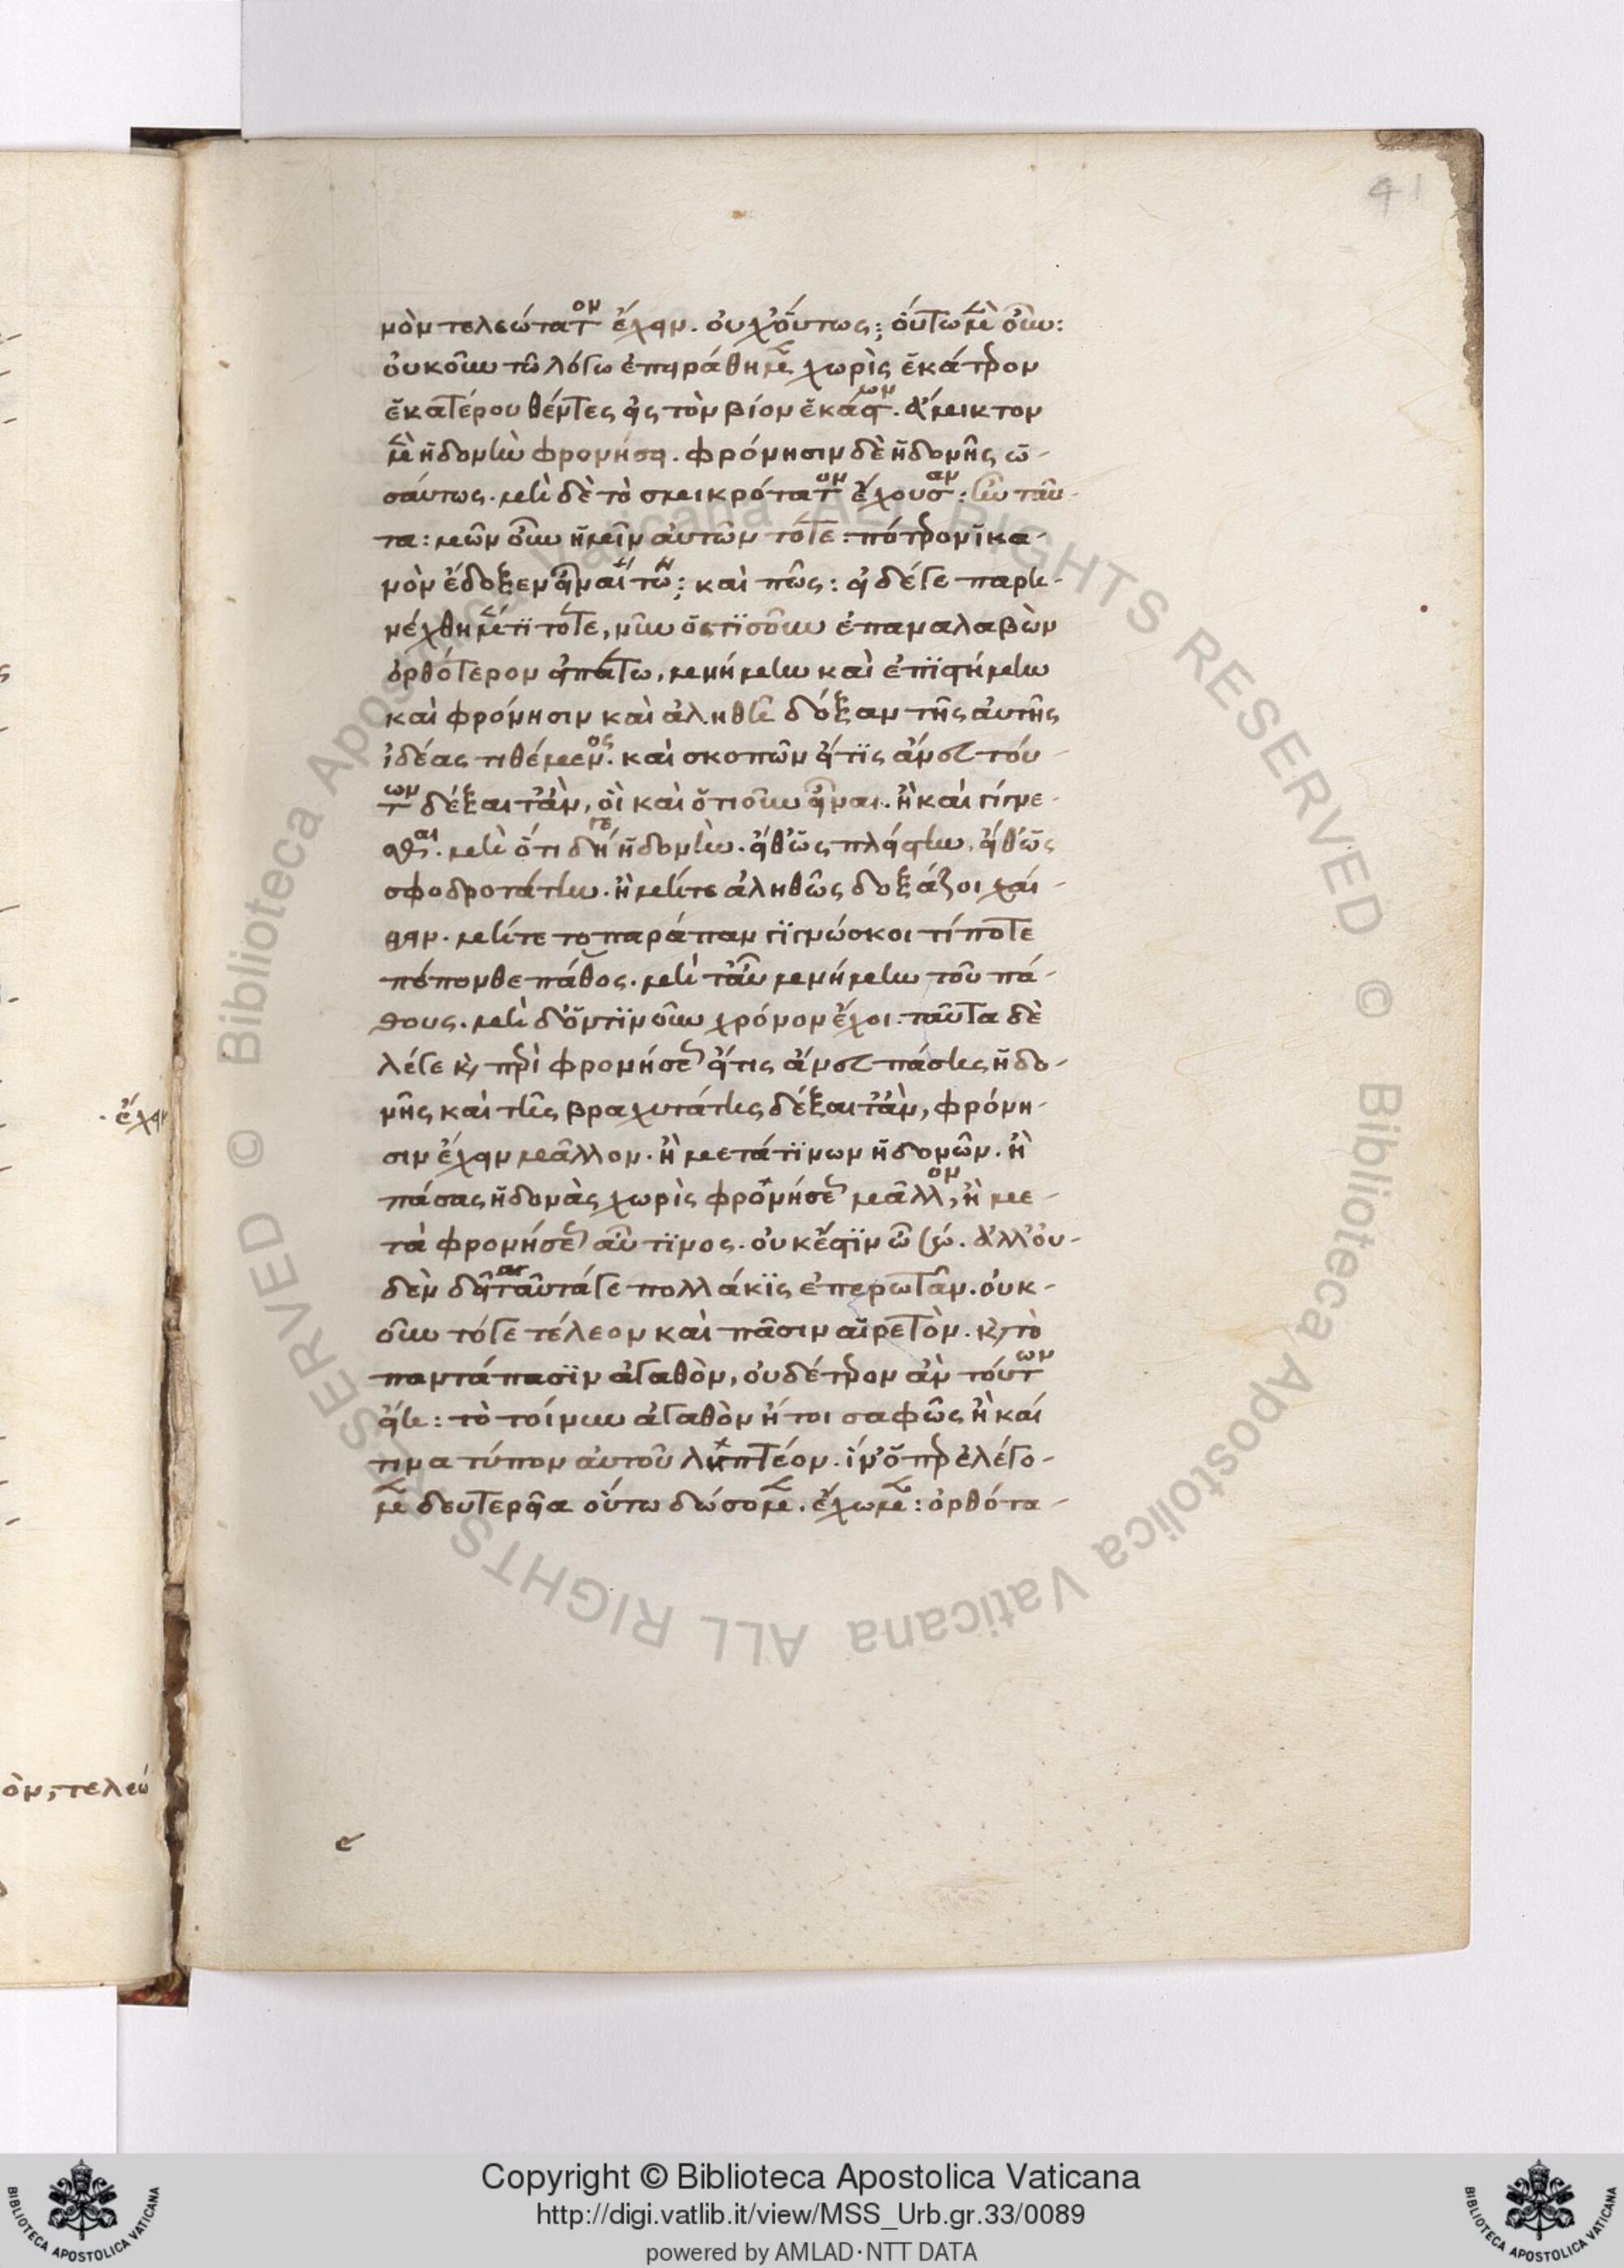 41
μὸν τελεώτατον ἔχειν. οὐχ οὕτως; οὕτω μὲν οὖν:
οὐκοῦν τῷ λόγῳ ἐπειράθημεν χωρὶς ἑκάτερον
ἑκατέρου θέντες εἰς τὸν βίον ἑκάστων. ἄμεικτον
μὲν ἡδονὴν φρονήσει. φρόνησιν δὲ ἡδονῆς ὡ-
σαύτως. μὴ δὲ τὸ σμικρότατον ἔχουσαν: ἦν ταῦ-
τα: μῶν οὖν ἡμῖν αὐτῶν τότε: πότερον ἱκα-
νὸν ἔδοξεν εἶναί τῳ; καὶ πῶς: εἰ δέ γε παρη-
νέχθημέν τι τότε, νῦν ὅστις οὖν ἐπαναλαβὼν
ὀρθότερον εἰπάτω, μνήμην καὶ ἐπιστήμην
καὶ φρόνησιν καὶ ἀληθῆ δόξαν τῆς αὐτῆς
ἰδέας τιθέμενος. καὶ σκοπῶν εἴ τις ἄνευ τού-
των δέξαιτ' ἂν, οἷ καὶ ὅτι οὖν εἶναι. ἢ καὶ γίγνε-
σθαι. μὴ ὅτι δή γε ἡδονὴν. εἴθ' ὡς πλείστην. εἴθ' ὡς
σφοδροτάτην. ἣν μήτε ἀληθῶς δοξάζοι χαί-
ρειν. μήτε το παράπαν γιγνώσκοι τί ποτε
πέπονθε πάθος. μὴ τ' αὖ μνήμην τοῦ πά-
θους. μὴ δ' ὅντιν οὖν χρόνον ἔχοι. ταῦτα δὲ
λέγε καὶ περὶ φρονήσεως εἴ τις ἄνευ πάσης ἡδο-
νῆς καὶ τῆς βραχυτάτης δέξαιτ' ἂν, φρόνη-
σιν ἔχειν μᾶλλον. ἢ μετά τινων ἡδονῶν. ἢ
πάσας ἡδονὰς χωρὶς φρονήσεως μᾶλλον, ἢ με-
τὰ φρονήσεως αὖ τινος. οὐκ ἔστιν ὦ σώ. ἀλλ' οὐ-
δὲν δεῖ ταῦτά γε πολλάκις ἐπερωτᾶν. οὐκ-
οῦν τό γε τέλεον καὶ πᾶσιν αἱρετὸν. καὶ τὸ
παντάπασιν ἀγαθὸν, οὐδέτερον ἂν τούτων
εἴη: τὸ τοίνυν ἀγαθὸν ἤτοι σαφῶς ἢ καί
τινα τύπον αὐτοῦ ληπτέον. ἵν' ὅπερ ἐλέγο-
μεν δευτερεῖα ὅτῳ δώσομεν. ἔχωμεν: ὀρθότα-
ἔχειν
ὸν, τελεώ
Copyright © Biblioteca Apostolica Vaticana
http://digi.vatlib.it/view/MSS_Urb.gr.33/0089
powered by AMLAD·NTT DATA